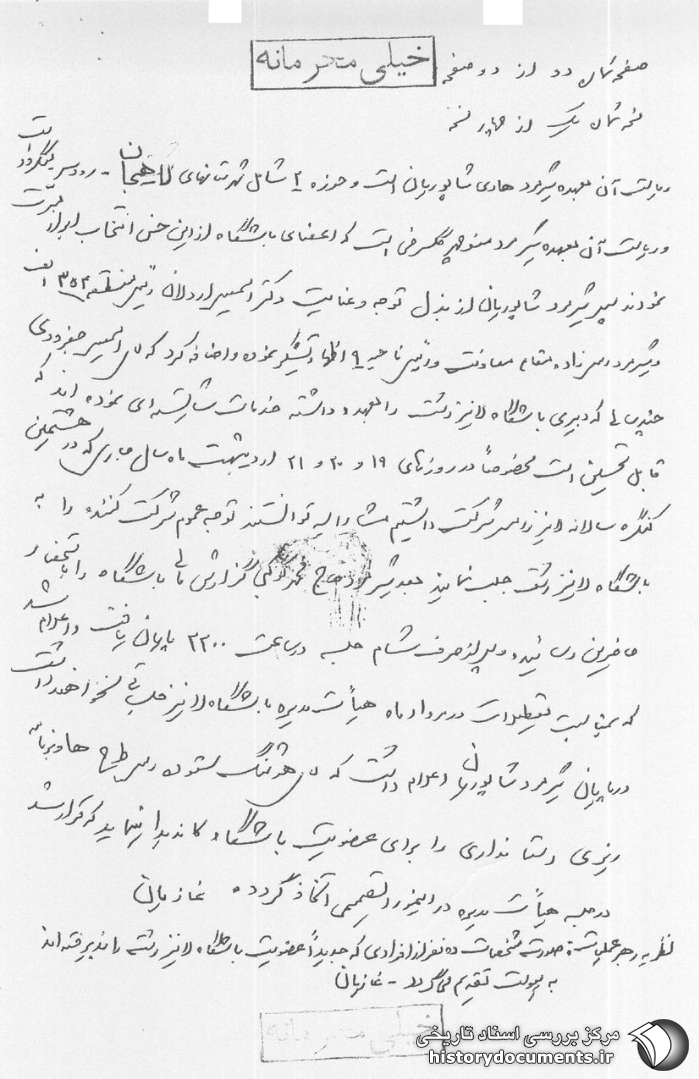 خیلی محرمانه
صفحه شماره دو از دو صفحه
نسخه شماره یک از چهار نسخه
ریاست آن بعهده شیرمرد هادی شاپوریان است و حوزه ۲ شامل شهرستانهای لاهیجان - رودسر لنگرود است
و ریاست آن بعهده شیرمرد منوچهر گلسرخی است که اعضای باشگاه از این حسن انتخاب ابراز مسرت
نمودند سپس شیرمرد شاپوریان از بذل توجه و عنایت دکتر المسیر اردلان رئیس منطقه ۳۵۴ الف
و شیرمرد رمرزاده مقام معاونت و رئیس ناحیه ۹ اظهار تشکر نموده و اضافه کرد که لاین المسیر جفرودی
چندیست که دبیری باشگاه لاینز رشت را بعهده داشته خدمات شایسته‌ای نموده‌اند که
قابل تحسین است مخصوصاً در روزهای ۱۹ و ۲۰ و ۲۱ اردیبهشت ماه سال جاری که در هشتمین
کنگره سالانه لاینز رامسر شرکت داشتیم مشارالیه توانستند توجه عموم شرکت کننده را به
باشگاه لاینز رشت جلب نمایند بعد شیرمرد حاج گزارش مالی باشگاه را باستحضار
حاضرین رسانید و پس از صرف شام جلسه در ساعت ۲۳۰۰ پایان یافت و اعلام شد
که بمناسبت تعطیلات در مرداد ماه هیأت مدیره باشگاه لاینز جلسه‌ای نخواهد داشت
در پایان شیرمرد شاپوریان اعلام داشت که لاین هوشنگ ستوده رئیس طرح ها و برنامه
ریزی استانداری را برای عضویت باشگاه کاندیدا نمایند که قرار شد
در جلسه هیأت مدیره در اینمورد تصمیمی اتخاذ گردد. غازیان
نظریه رهبر عملیات: صورت مشخصات ده نفر از افرادی که جدیداً عضویت باشگاه لاینز رشت را پذیرفته‌اند
به پیوست تقدیم میگردد - غازیان
خیلی محرمانه
مرکز بررسی اسناد تاریخی
historydocuments.ir